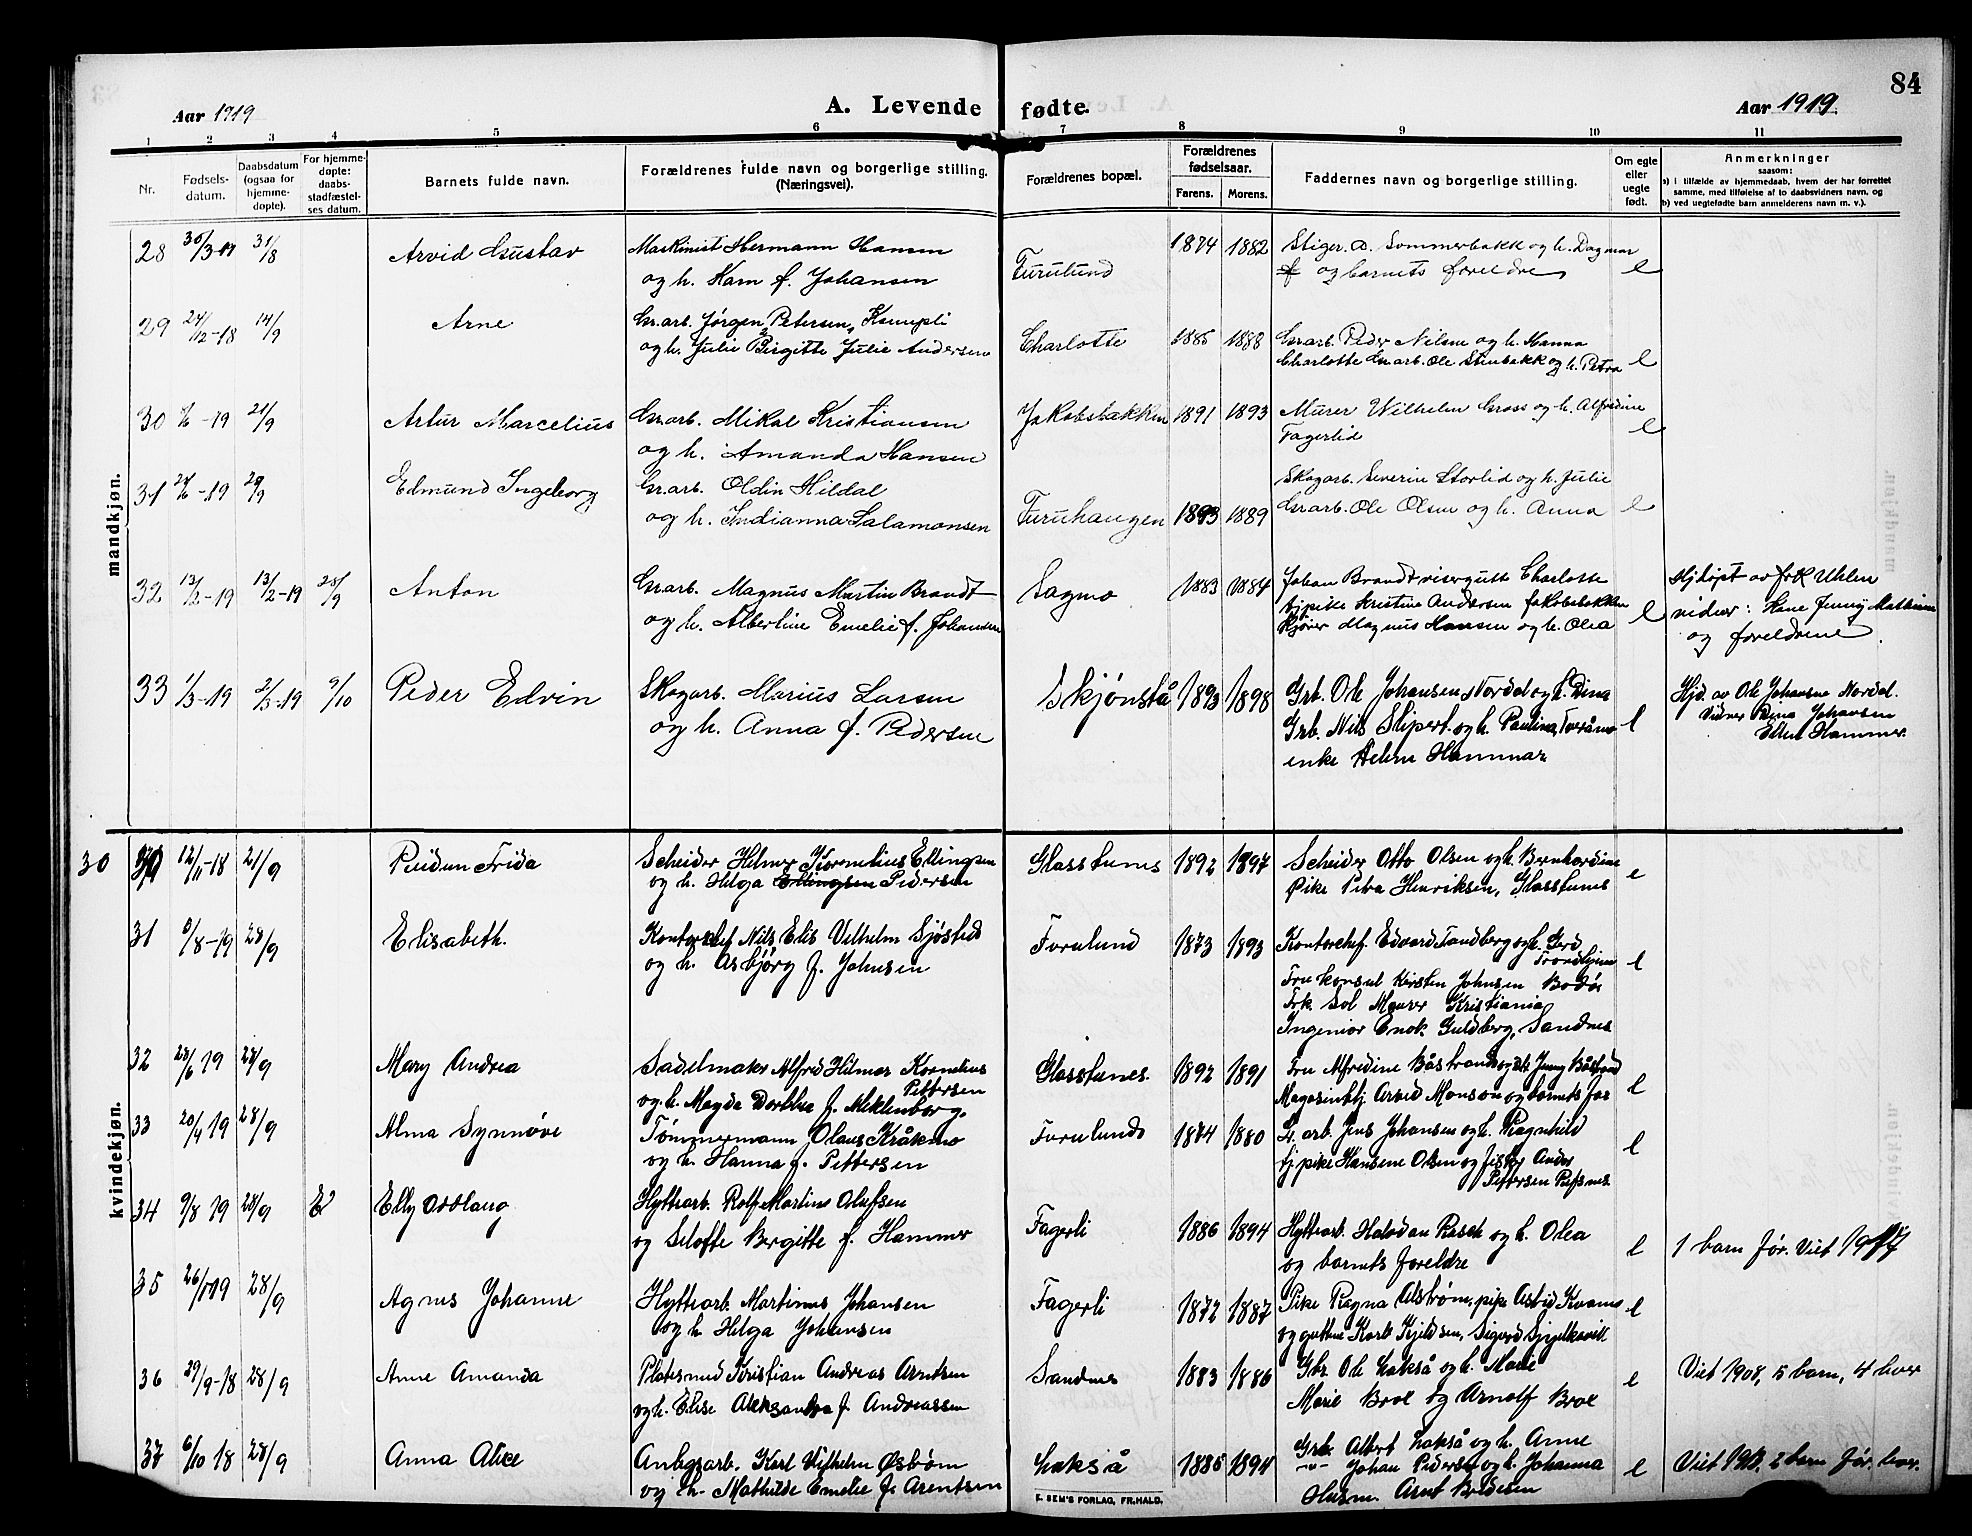 84
Aar 1919
A. Levende fødte.
Aar 1919
1 2 3 4 5 6 7 8 9 10 11
Nr.
Fødsels-
datum.
Daabsdatum
(ogsaa for
hjemme-
døpte).
For hjemme-
døpte:
daabs-
stadfæstel-
ses datum.
Barnets fulde navn.
Forældrenes fulde navn og borgerlige stilling.
(Næringsvei).
Forældrenes bopæl.
Forældrenes
fødselsaar.
Farens. Morens.
Faddernes navn og borgerlige stilling.
Om egte
eller
uegte
født.
Anmerkninger
saasom:
a) i tilfælde av hjemmedaab, hvem der har forrettet
samme, med tilføielse af to daabsvidners navn, og
b) ved uegtefødte barn anmelderens navn m. v.).
mandkjøn.
28 31/8 Arvid Gustav Maskinist Hermann Hansen Furulund 1874 1882 Stiger. A. Sommerbakk og h. Dagmar
og h. Ham f. Johansen og barnets foreldre e
29 24/12-18 14/9 Arne Gr.arb. Jørgen Petersen, Charlotte 1885 1888 Gr.arb. Peder Nilsen og h. Hanna
og h. Julie Birgitte Julie Andersen Charlotte Gr.arb. Ole Stenbakk og h. Petra e
30 21/9 Artur Marcelius Gr.arb. Mikal Kristiansen Jakobsbakken 1891 1893 Murer Wilhelm Gross og h. Alfredine
og h. Amanda Hansen Fagerlid e
31 Edmund Ingeborg Gr.arb. Oldin Hildal Skogarb. Severin Storlid og h. Julie
og h. Indianna Salamonsen Furuhaugen 1893 1889 Gr.arb. Ole Olsen og h. Anna e
32 13/2-19 13/2-19 28/9 Anton Gr.arb. Magnus Martin Brandt Sagmo 1883 1884 Johan Brandt visergutt Charlotte Hjdøpt av frk Uhlen
og h. Albertine Emelie f. Johansen tjpike Kristine Andersen Jakobsbakken e vidner: Hane Jenny Mathisen
Kjører Magnus Hansen og h. Olea og foreldrene.
33 1/3-19 2/3-19 9/10 Peder Edvin Skogarb. Marius Larsen Skjønstå 1893 1898 Grb. Ole Johansen Nordal og h. Dina Hjd. av Ole Johansen Nordal.
og h. Anna f. Pedersen Grb. Nils Skipert. og h. Paulina, Torråmo e Vidner Dina Johansen
enke Helene Hammar Ellen Hammer.
kvindekjøn.
30 12/11-18 21/9 Reidun Frida Scheider Hilmer Kornelius Ellingsen Glasstunes 1892 1897 Scheider Otto Olsen og h. Bernhardine
og h. Helga Ellingsen Pedersen Pike Petra Henriksen, Glasstunes e
31 8/8-19 28/9 Elisabeth. Kontorchef Nils Elis Vilhelm Sjøsted Furulund 1873 1893 Kontorchef. Edvard Tandberg og h. Gerd
og h. Asbjørg f. Johnsen Trondhjem e
Fru konsul Kirsten Johnsen Bodø
Frk. Sol Maurer Kristiania
Ingeniør Enok Guldberg, Sandnes
32 28/6 19 28/9 Mary Andrea Sadelmaker Alfred Hilmar Kornelius Glasstunes. 1892 1891 Fru Alfredine Båstrand og frk Jenny Båstrand
Pettersen
og h. Magda Dorthea f. Meklenborg. Magasinbtj Arvid Monson og barnets far e
33 20/4 19 28/9 Alma Synnøve Tømmermann Olaus Kråkmo Furulund 1874 1880 Gr. arb. Jens Johansen og h. Ragnhild
og h. Hanna f. Pettersen tjpike Hansene Olsen og fisker Ander e
Pettersen Røfsnes
34 9/8 19 28/9 E Elly Oddlaug Hytttearb. Rolf Martins Olufsen Fagerli 1886 1894 Hyttearb. Halvdan Rasch og h. Olea
og Seloffe Bergitte f. Hammer og barnets foreldre e 1 barn før. Viet 1917
35 28/9 Agnes Johanne Hyttearb. Martinus Johansen Fagerli 1872 1887 Pike Ragna Alstrøm, pike Astrid Kvams e
og h Helga Johansen og guttene Karl Kjeldsen, Sigurd Sjyelkavik
36 29/9-18 28/9 Anne Amanda Platesmed Kristian Andreas Arntsen Sandnes 1883 1886 Gbr Ole Lakså og h. Marie Viet 1908, 5 barn, 4 lever
og h. Elise Aleksandra f. Andreassen Marie Brol og Arnolf Brol e
37 6/10 18 28/9 Anna Alice Anlegsarb. Karl Vilhelm Østbøm Lakså 1885 1894 Grb. Albert Lakså og h. Anne
og h. Mathilde Emelie f. Arentsen -"- Johan Pedersen og h. Johanna e barn før. lever.
Husm. Arnt Bredesen
E. SEM'S FORLAG, FR.HALD.